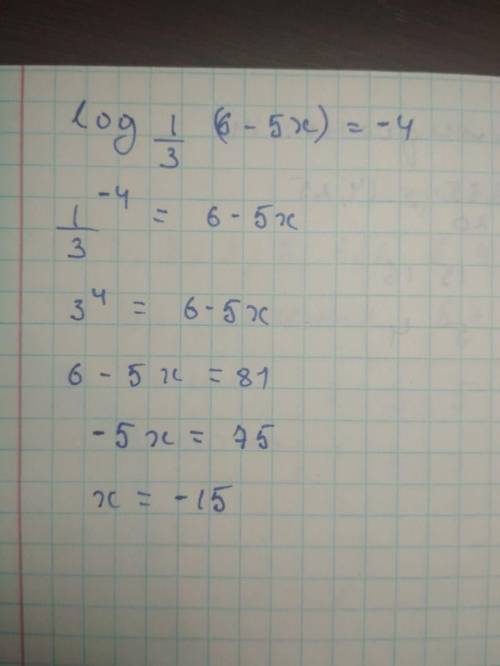 log 1/3 (6 - 5x) = -4
1/3 ^-4 = 6 - 5x
3^4 = 6 - 5x
6 - 5x = 81
-5x = 75
x = -15